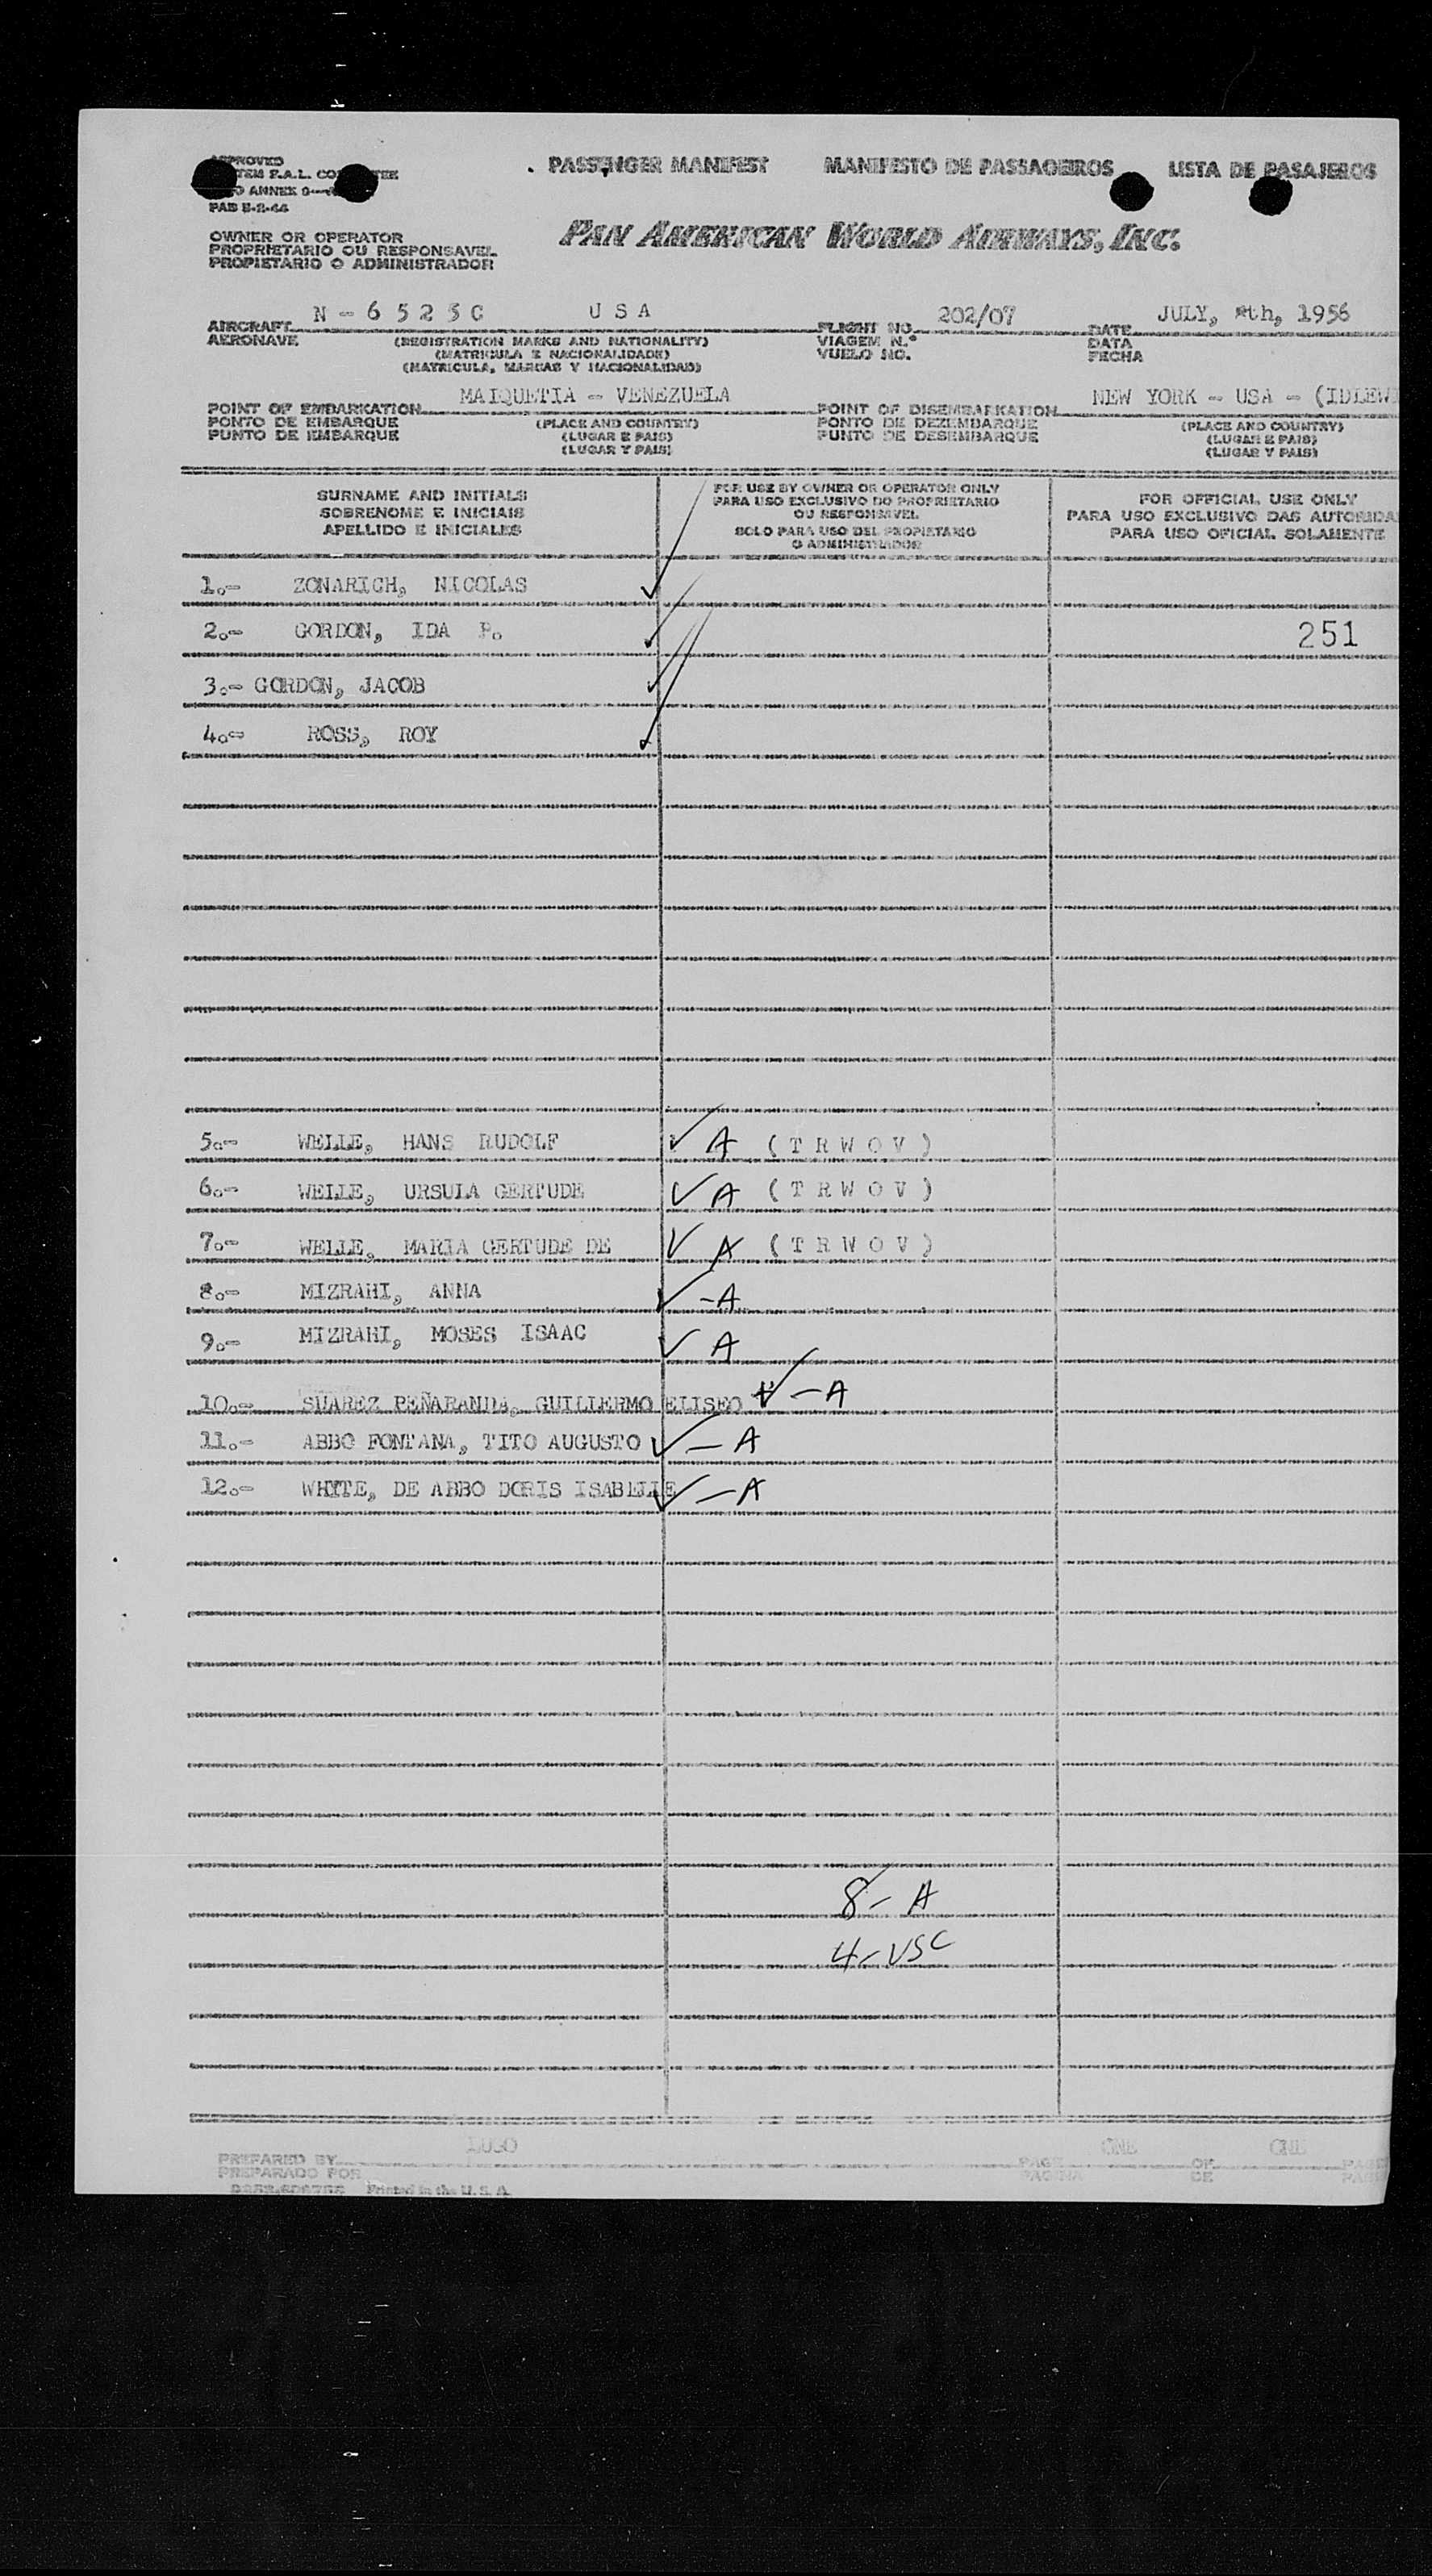 PASSENGER MANIFEST MANIFESTO DE PASSAGEIROS LISTA DE PASAJEROS
APPROVED
F.A.L.
ANNEX 9
OWNER OR OPERATOR
PROPRIETARIO OU RESPONSAVEL
PROPIETARIO O ADMINISTRADOR
PAN AMERICAN WORLD AIRWAYS, INC.
AIRCRAFT N - 6 5 2 5 C U S A FLIGHT NO. 202/07 DATE JULY, th, 1956
AERONAVE (REGISTRATION MARKS AND NATIONALITY) VIAGEM N.º DATA
(MATRICULA E NACIONALIDADE) VUELO NO. FECHA
(MATRICULA, MARCAS Y NACIONALIDAD)
POINT OF EMBARKATION MAIQUETIA - VENEZUELA POINT OF DISEMBARKATION NEW YORK - USA - (IDLEW
PONTO DE EMBARQUE (PLACE AND COUNTRY) PONTO DE DEZEMBARQUE (PLACE AND COUNTRY)
PUNTO DE EMBARQUE (LUGAR E PAIS) PUNTO DE DESEMBARQUE (LUGAR E PAIS)
(LUGAR Y PAIS) (LUGAR Y PAIS)
SURNAME AND INITIALS
SOBRENOME E INICIAIS
APELLIDO E INICIALES
FOR USE BY OWNER OR OPERATOR ONLY
PARA USO EXCLUSIVO DO PROPRIETARIO
OU RESPONSAVEL
SOLO PARA USO DEL PROPIETARIO
O ADMINISTRADOR
FOR OFFICIAL USE ONLY
PARA USO EXCLUSIVO DAS AUTORIDA
PARA USO OFICIAL SOLAMENTE
1.- ZONARICH, NICOLAS ✓
2.- GORDON, IDA P. ✓ 251
3.- GORDON, JACOB ✓
4.- ROSS, ROY ✓
5.- WELLE, HANS RUDOLF ✓ A ( T R W O V )
6.- WELLE, URSULA GERTUDE ✓ A ( T R W O V )
7.- WELLE, MARIA GERTUDE DE ✓ A ( T R W O V )
8.- MIZRAHI, ANNA ✓ -A
9.- MIZRAHI, MOSES ISAAC ✓ A
10.- SUAREZ PEÑARANDA, GUILLERMO ELISEO ✓ - A
11.- ABBO FONTANA, TITO AUGUSTO ✓ - A
12.- WHYTE, DE ABBO DORIS ISABELLE ✓ - A
8 - A
4 - USC
PREPARED BY LUGO PAGE ONE OF ONE
PREPARADO POR PAGINA DE
Printed in the U. S. A.